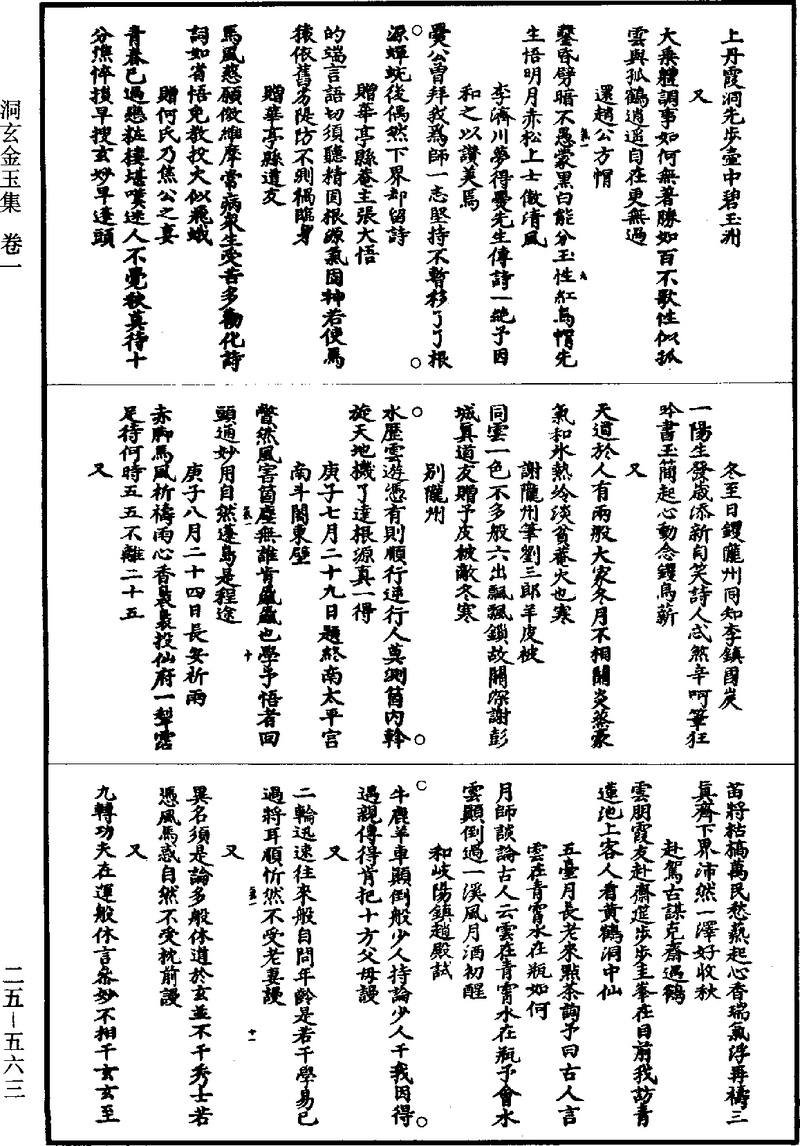 上丹霞洞先步壺中碧玉洲
又
大乘體調事如何無著勝如百不歌性似孤
雲與孤鶴逍遥自在更無過
還趙公方帽
鑿昏劈暗不愚蒙黑白能分玉性紅烏帽先
生悟明月赤松上士傲清風
李濟川夢得晏先生傳詩一絶予因
和之以讃美焉
晏公曾拜我爲師一志堅持不暫移了了根
源蟬蛻後偶然下界却留詩
贈華亭縣菴主張大悟
的端言語切須聽精固根源氣固神若使馬
猿依舊劣隄防不測禍臨身
贈華亭縣道友
馬風慈願倣維摩常病衆生受苦多勸化詩
詞如省悟免教投火似飛蛾
贈何氏乃焦公之妻
青春已過戀粧摟堪嘆迷人不覺秋莫待十
分憔悴摧早搜玄妙早蓬頭
冬至日鑁隴州同知李鎮國炭
一陽生發歲添新句笑詩人忒煞辛呵筆狂
吟書玉簡起心動念鑁烏薪
又
天道於人有兩般大家冬月不相關炎蒸豪
氣和氷熱冷淡貧菴火也寒
謝隴州筆劉三郎羊皮被
同雲一色不多般六出飄飄鎖故關深謝彭
城真道友贈予皮被敵冬寒
別隴州
水歷雲遊憑有則順行逆行人莫測箇内幹
旋天地機了達根源真一得
庚子七月二十九日題終南太平宮
南斗閣東壁
瞥然風害箇塵無誰肯癲癲也學予悟者回
頭通妙用自然蓬島是程途
庚子八月二十四日長安祈雨
赤脚馬風祈禱雨心香裊裊投仙府一犁霑
足待何時五五不離二十五
又
苗將枯槁萬民愁爇起心香瑞氣浮再禱三
真齊下界沛然一澤好收秋
赴駕古謀克齋遇鶴
雲朋霞友赴齋筵步步圭峯在目前我訪青
蓮池上客人看黃鶴洞中仙
五臺月長老來點茶詢予曰古人言
雲在青霄水在瓶如何
月師談論古人云雲在青霄水在瓶予會水
雲顛倒過一溪風月酒初醒
和岐陽鎮趙殿試
牛鹿羊車顛倒般少人持論少人干我因得
遇親傳得肯把十方父母謾
又
二輪迅速往來般自問年齡是若干學易已
過將耳順忻然不受老妻謾
又
異名須是論多般休道於玄並不干秀士若
憑風馬惑自然不受枕前謾
又
九轉功夫在運般休言衆妙不相干玄玄至
洞玄金玉集 卷一
二五—五六三